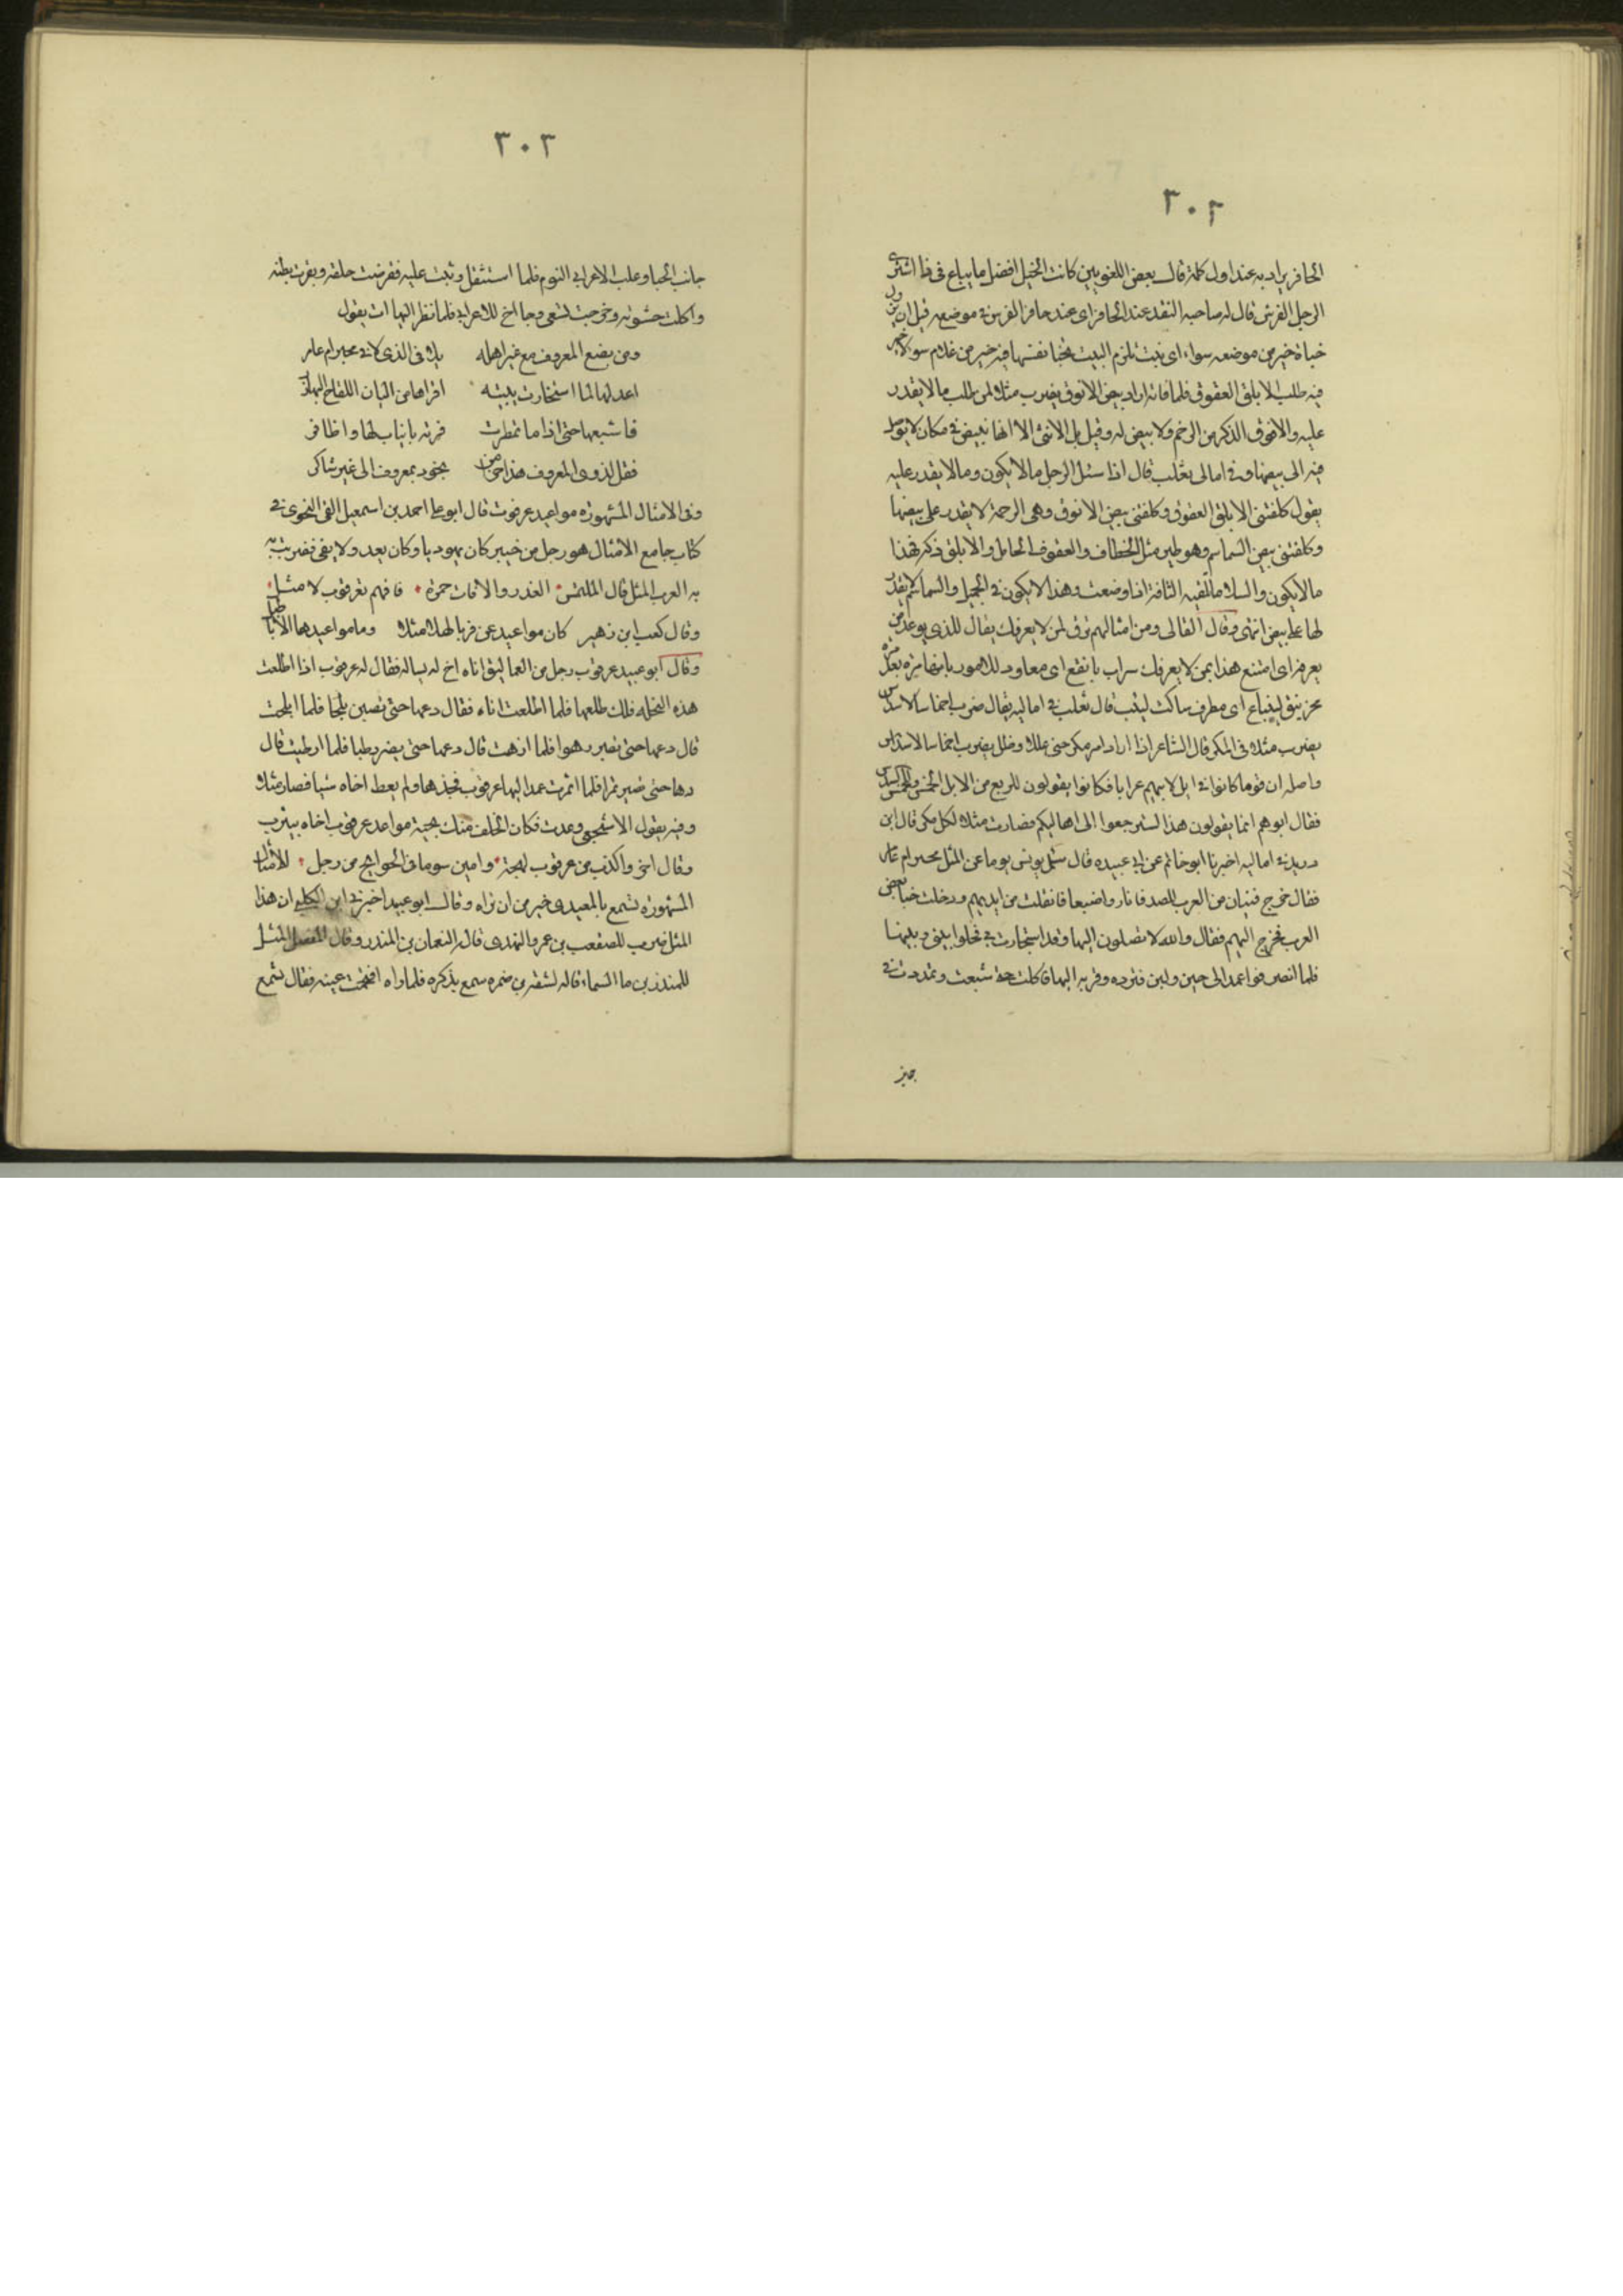 ٣٠٢
الحافر يراد به عند اول كلمة قال بعض اللغويين كانت الخيل افضل ما يباع فى فاذا اشترى
الرجل الفرس قال له صاحبه النقد عند الحافر اى عند حافر الفرس فى موضعه قبل ان يزول
خباة خير من موضعه سواء اى بنت تلزم البيت تخبا نفسها فيه خير من غلام سوء لا خير
فيه طلب الابلق العقوق فلما فاته اراد بيض الانوق يضرب مثلا لمن طلب ما لا يقدر
عليه والانوق الذكر من الرخم ولا بيض له وقيل بل الانثى الا انها تبيض فى مكان لا يوصل
فيه الى بيضها وفى امالى ثعلب قال اذا سئل الرجل ما لا يكون وما لا يقدر عليه
يقول كلفتنى الابلق العقوق وكلفتنى بيض الانوق وهى الرخمة لا يقدر على بيضها
وكلفتنى بيض السماسم وهو طير مثل الخطاف والعقوق الحامل والابلق ذكر فهذا
ما لا يكون والسلا ما تلقيه الناقة اذا وضعت وهذا لا يكون فى الجمل والسماسم لا يقدر
لها على بيض انتهى وقال القالى ومن امثالهم برق لمن لا يعرفك يقال للذى يوعد من
يعرفه اى امتنع هذا بمن لا يعرفك شراب بانقع اى معاود للامور ياتيها مرة بعد مرة
مخرنبق لينباع اى مطرق ساكت ليثب قال ثعلب فى اماليه يقال ضرب اخماسا لاسداس
يضرب مثلا فى المكر قال الشاعر اذا اراد امر مكر جنى عللا وظل يضرب اخماسا لاسداس
واصله ان قوما كانوا فى ابل لابيهم عزابا فكانوا يقولون للربع من الابل الخمس وللخمس السدس
فقال ابوهم انما يقولون هذا لترجعوا الى اهاليكم فصارت مثلا لكل مكر قال ابن
دريد فى اماليه اخبرنا ابو حاتم عن ابى عبيده قال سئل يونس يوما عن المثل مجير ام عامر
فقال خرج فتيان من العرب للصيد فاثاروا ضبعا فانفلت من ايديهم ودخلت خبا بعض
العرب فخرج اليهم فقال والله لا تصلون اليها وقد استجارت بى فخلوا بينه وبينها
فلما انصرفوا عمد الى خبز ولبن فثرده وقربه اليها فاكلت حتى شبعت وتمددت فى
جانب
٣٠٣
جانب الخبا وغلب الاعرابى النوم فلما استثقل وثبت عليه فقرضت حلقه وبقرت بطنه
واكلت حشوته وخرجت تسعى وجا اخ للاعرابى فلما نظر اليها انشا يقول
ومن يصنع المعروف مع غير اهله يلاقى الذى لاقى مجير ام عامر
اعد لها لما استجارت ببيته اقراها من البان اللقاح البهازر
فاشبعها حتى اذا ما تمطرت فرته بانياب لها واظافر
فقل لذوى المعروف هذا جزا من يجود بمعروف الى غير شاكر
ومن الامثال المشهورة مواعيد عرقوب قال ابو على احمد بن اسمعيل القمى النحوى فى
كتاب جامع الامثال هو رجل من خيبر كان يهوديا وكان يعد ولا يفى فضربت به
به العرب المثل قال المتلمس الغدر والافات حمزة فافهم تعرقوب لا مثل
وقال كعب ابن زهير كان مواعيد عرقوب لها مثلا وما مواعيدها الا الاباطيل
وقال ابو عبيد عرقوب رجل من العماليق اتاه اخ له يساله فقال له عرقوب اذا اطلعت
هذه النخله فلك طلعها فلما اطلعت اتاه فقال دعها حتى تصير بلحا فلما ابلحت
قال دعها حتى تصير زهوا فلما ازهت قال دعها حتى يصير رطبا فلما ارطبت قال
دعها حتى تصير تمرا فلما اتمرت عمد اليها عرقوب فجذها ولم يعط اخاه شيا فصار مثلا
وفيه يقول الاشجعى وعدت وكان الخلف منك سجية مواعد عرقوب اخاه بيترب
وقال اخر واكذب من عرقوب لهجة وابين سوما فى الحوائج من رجل للامثال
المشهورة تسمع بالمعيدى خير من ان تراه وقال ابو عبيد اخبرنى ابن الكلبى ان هذا
المثل ضرب للصقعب بن عمرو النهدى قاله النعمان بن المنذر وقال المفضل المثل
للمنذر بن ما السماء قاله لشقه بن ضمره سمع بذكره فلما راه اقتحمت عينه فقال تسمع